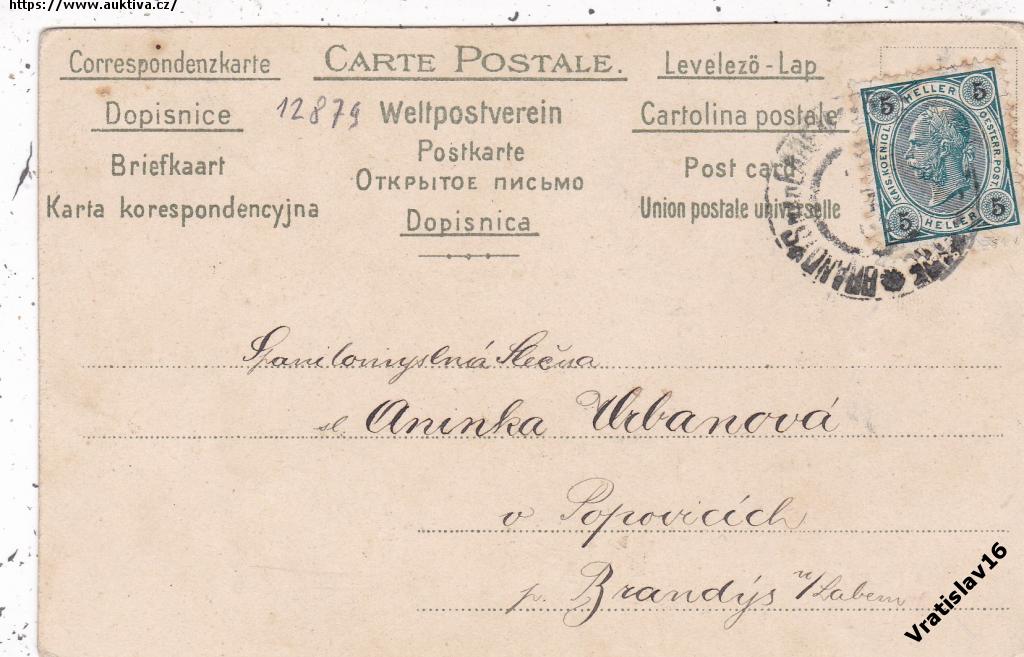 https://www.auktiva.cz/
Correspondenzkarte
CARTE POSTALE.
Levelező-Lap
Dopisnice
12879
Weltpostverein
Cartolina postale
Briefkaart
Postkarte
Post card
Karta korespondencyjna
ОТКРЫТОЕ ПИСЬМО
Union postale universelle
Dopisnica
5 HELLER 5
KAIS. KOENIGL. OESTERR. POST.
5 HELLER 5
BRANDÝS
Spanilomyslná Slečna
sl. Aninka Urbanová
v Popovicích
p. Brandýs n/Labem
Vratislav16